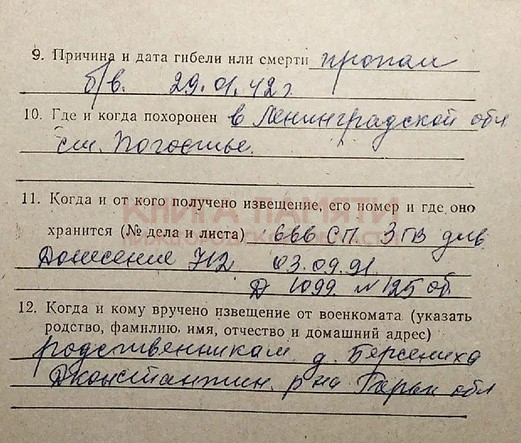 9. Причина и дата гибели или смерти пропал
б/в. 29.01.42 г.
10. Где и когда похоронен в Ленинградской обл
ст. Погостье.
11. Когда и от кого получено извещение, его номер и где оно
КНИГА ПАМЯТИ
хранится (№ дела и листа) 666 СП 3 ГВ див
НИЖЕГОРОДСКОЙ ОБЛАСТИ
Донесение 03.09.91
Д 1099 № 125 об.
12. Когда и кому вручено извещение от военкомата (указать
родство, фамилию, имя, отчество и домашний адрес)
родственникам д. Берсениха
Дконстантин. р на Горьк обл